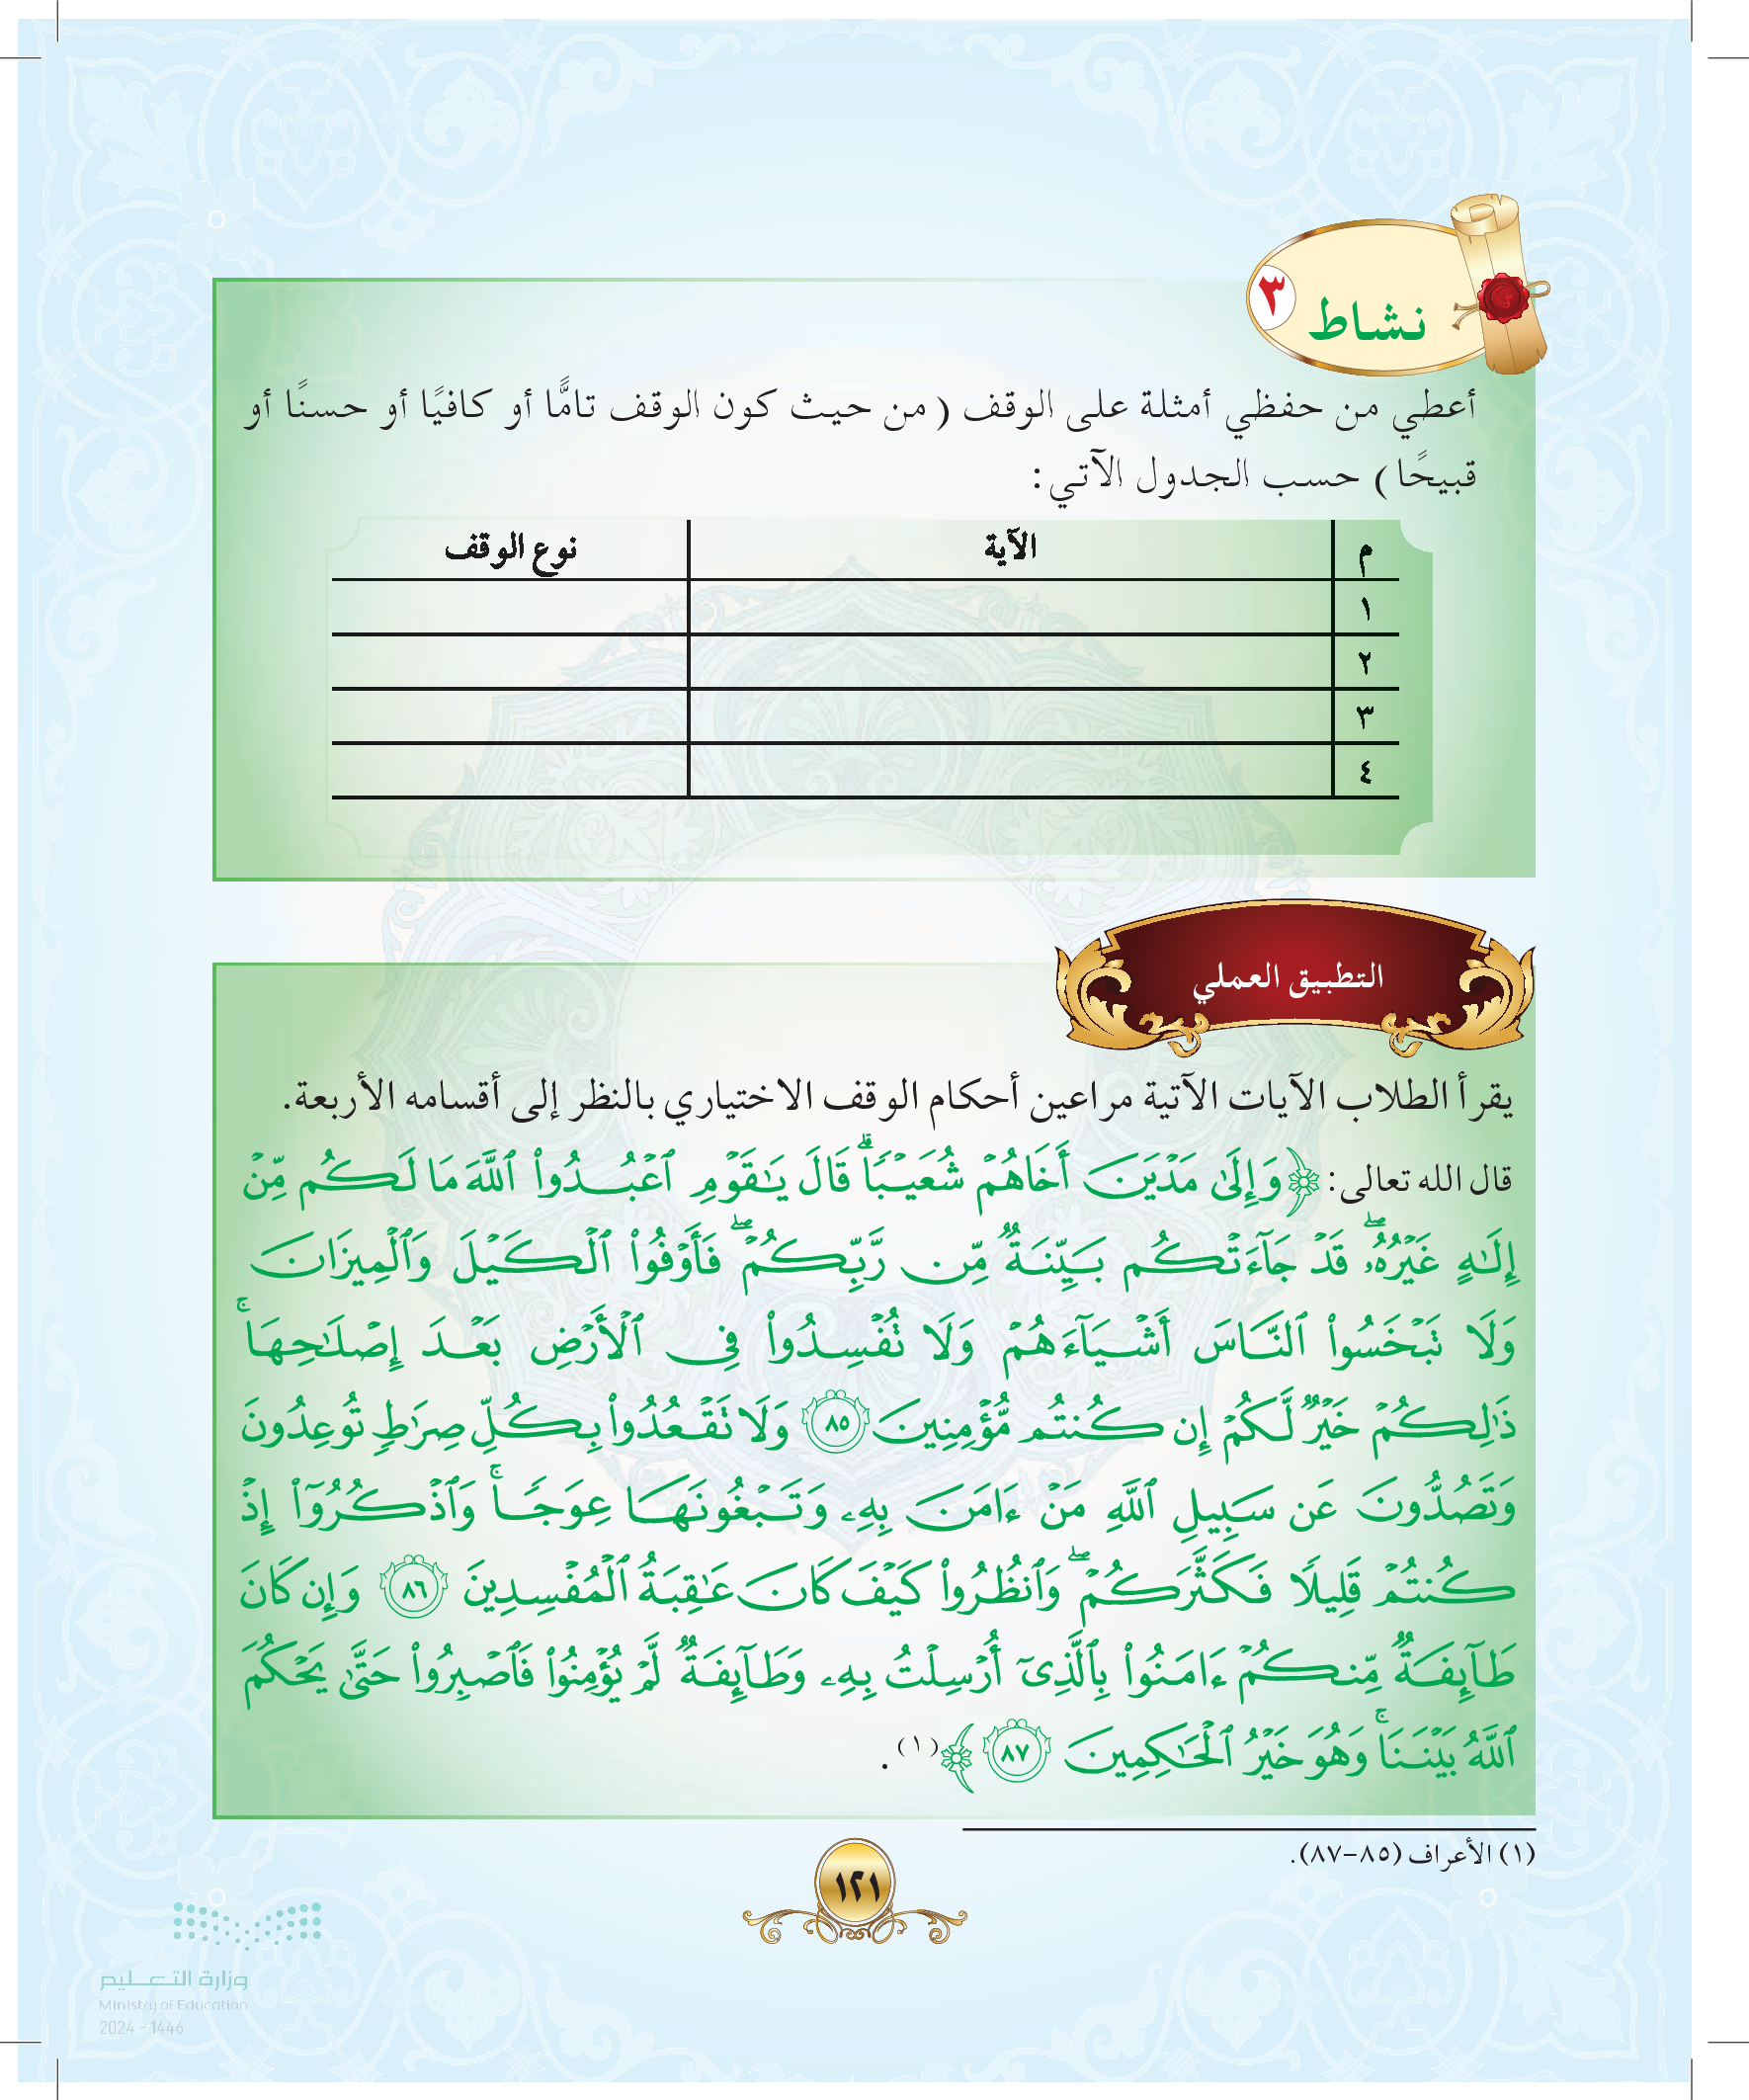 نشاط ٣
أعطي من حفظي أمثلة على الوقف (من حيث كون الوقف تامًّا أو كافيًا أو حسنًا أو
قبيحًا) حسب الجدول الآتي:
م الآية نوع الوقف
١
٢
٣
٤
التطبيق العملي
يقرأ الطلاب الآيات الآتية مراعين أحكام الوقف الاختياري بالنظر إلى أقسامه الأربعة.
قال الله تعالى: ﴿وَإِلَىٰ مَدۡيَنَ أَخَاهُمۡ شُعَيۡبٗاۚ قَالَ يَٰقَوۡمِ ٱعۡبُدُواْ ٱللَّهَ مَا لَكُم مِّنۡ
إِلَٰهٍ غَيۡرُهُۥۖ قَدۡ جَآءَتۡكُم بَيِّنَةٞ مِّن رَّبِّكُمۡۖ فَأَوۡفُواْ ٱلۡكَيۡلَ وَٱلۡمِيزَانَ
وَلَا تَبۡخَسُواْ ٱلنَّاسَ أَشۡيَآءَهُمۡ وَلَا تُفۡسِدُواْ فِي ٱلۡأَرۡضِ بَعۡدَ إِصۡلَٰحِهَاۚ
ذَٰلِكُمۡ خَيۡرٞ لَّكُمۡ إِن كُنتُم مُّؤۡمِنِينَ ٨٥ وَلَا تَقۡعُدُواْ بِكُلِّ صِرَٰطٖ تُوعِدُونَ
وَتَصُدُّونَ عَن سَبِيلِ ٱللَّهِ مَنۡ ءَامَنَ بِهِۦ وَتَبۡغُونَهَا عِوَجٗاۚ وَٱذۡكُرُوٓاْ إِذۡ
كُنتُمۡ قَلِيلٗا فَكَثَّرَكُمۡۖ وَٱنظُرُواْ كَيۡفَ كَانَ عَٰقِبَةُ ٱلۡمُفۡسِدِينَ ٨٦ وَإِن كَانَ
طَآئِفَةٞ مِّنكُمۡ ءَامَنُواْ بِٱلَّذِيٓ أُرۡسِلۡتُ بِهِۦ وَطَآئِفَةٞ لَّمۡ يُؤۡمِنُواْ فَٱصۡبِرُواْ حَتَّىٰ يَحۡكُمَ
ٱللَّهُ بَيۡنَنَاۚ وَهُوَ خَيۡرُ ٱلۡحَٰكِمِينَ ٨٧﴾(١).
(١) الأعراف (٨٥-٨٧).
١٢١
وزارة التعليم
Ministry of Education
2024 - 1446